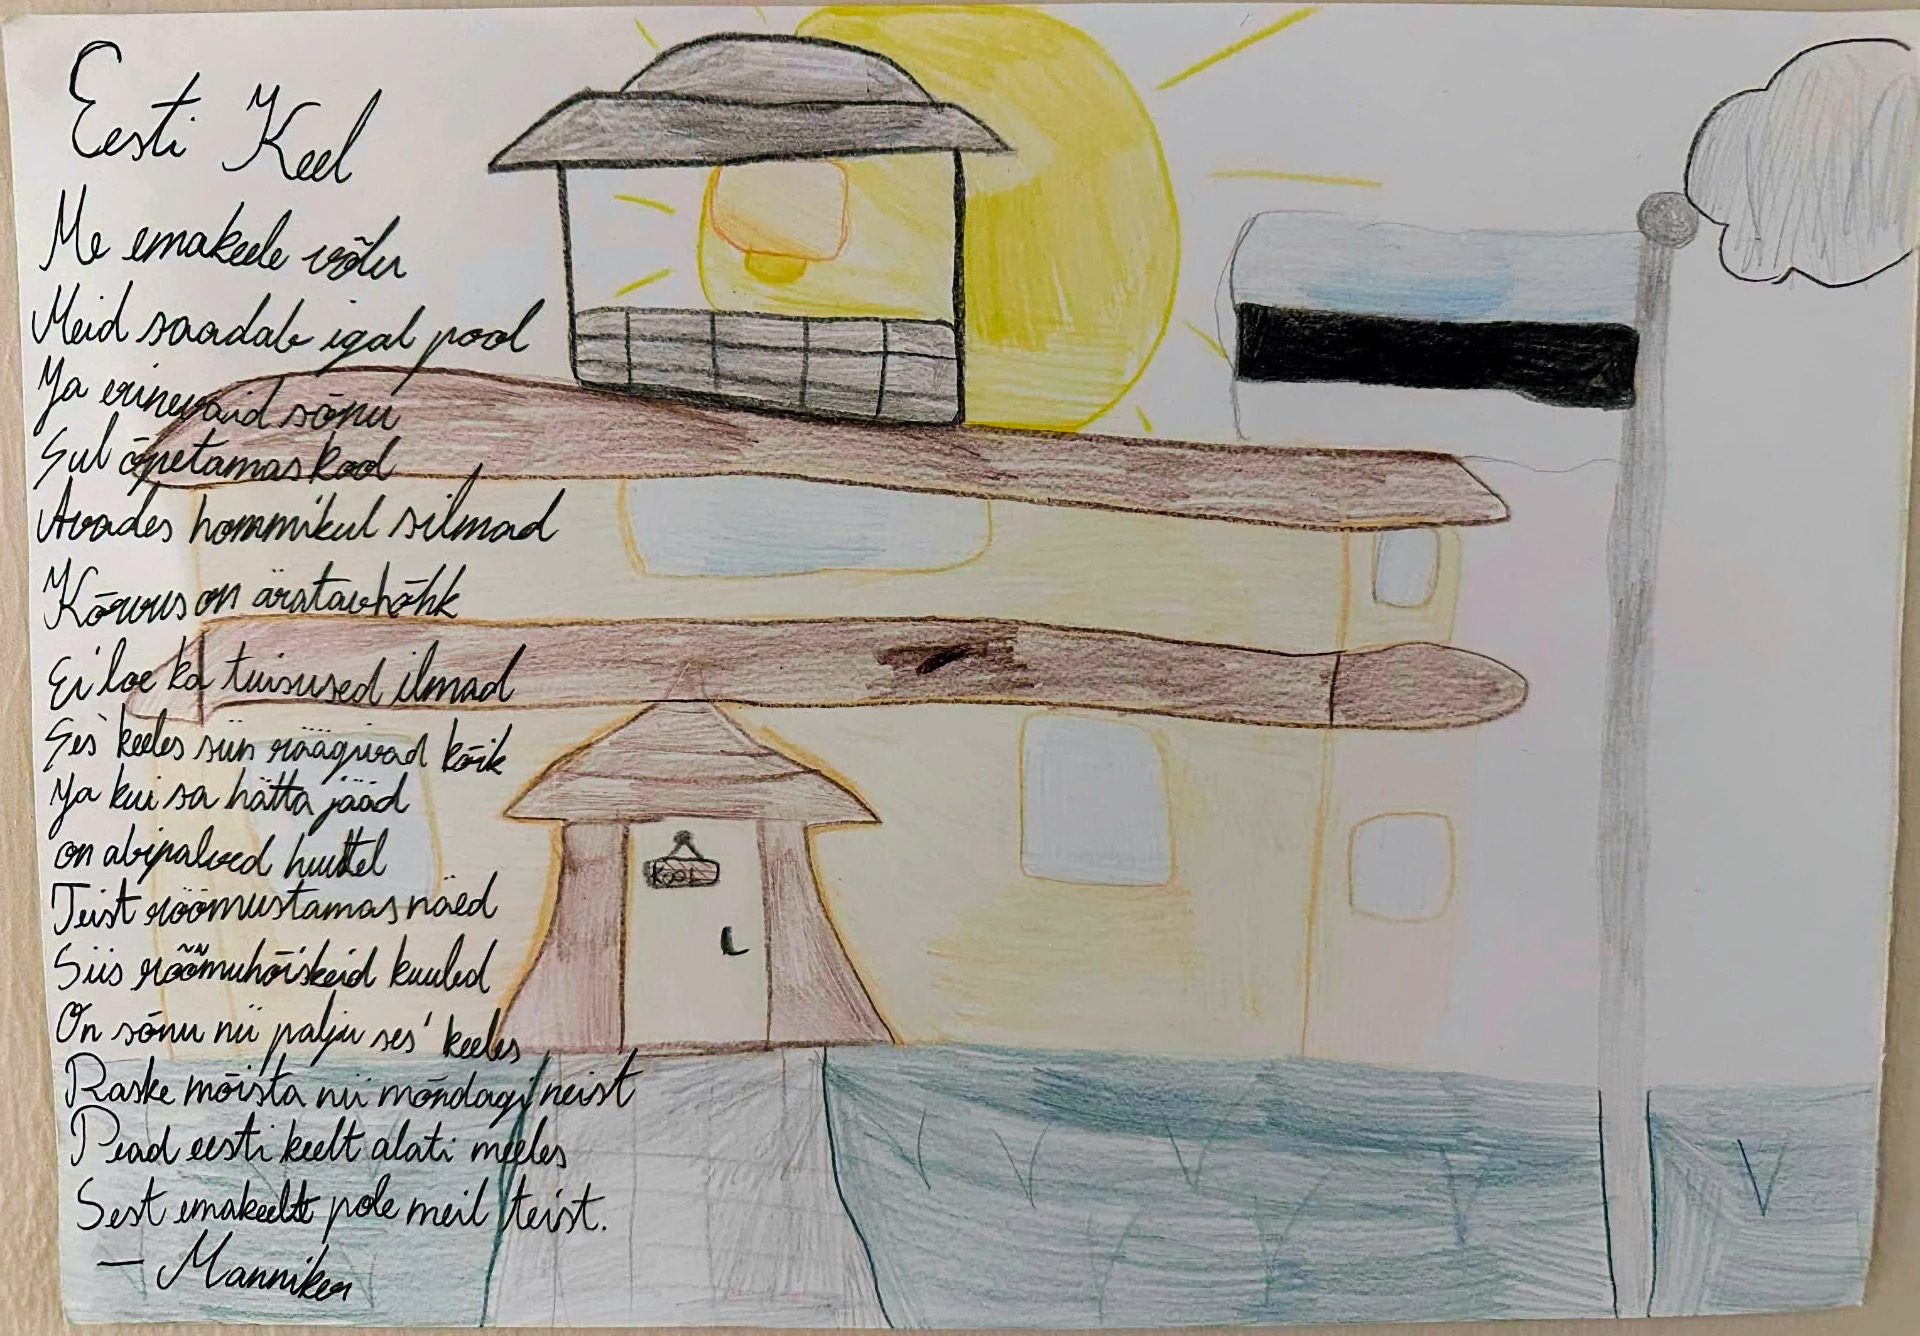 Eesti Keel
Me emakeele võlu
Meid saadab igal pool
Ja erinevaid sõnu
Sul õpetamas kool
Avades hommikul silmad
Kõrvus on äratav hõhk
Ei loe ka tuisused ilmad
Ses' keeles siin räägivad kõik
Ja kui sa hätta jääd
on abipalved huultel
Teist rõõmustamas näed
Siis rõõmuhõiskeid kuuled
On sõnu nii palju ses' keeles
Raske mõista nii mõndagi neist
Pead eesti keelt alati meeles
Sest emakeelt pole meil teist.
— Manniker
KOOL